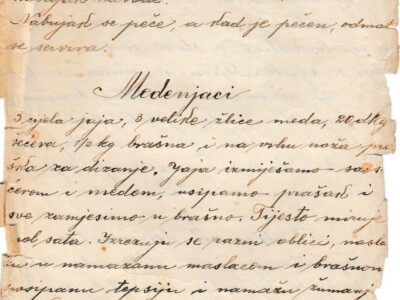 Nabujak se peče, a kad je pečen, odmah
se servira.
Medenjaci
3 cijela jaja, 3 velike žlice meda, 20 dkg
šećera, 1/2 kg brašna i na vrhu noža pra
ška za dizanje. Jaja izmiješamo sa še
ćerom i medom, usipamo prašak i
sve zamjesimo u brašno. Tijesto miruje
pol sata. Izrezuju se razni oblici,
u namazanu maslacem i brašnom
posipanu tepsiju i namažu žumanj